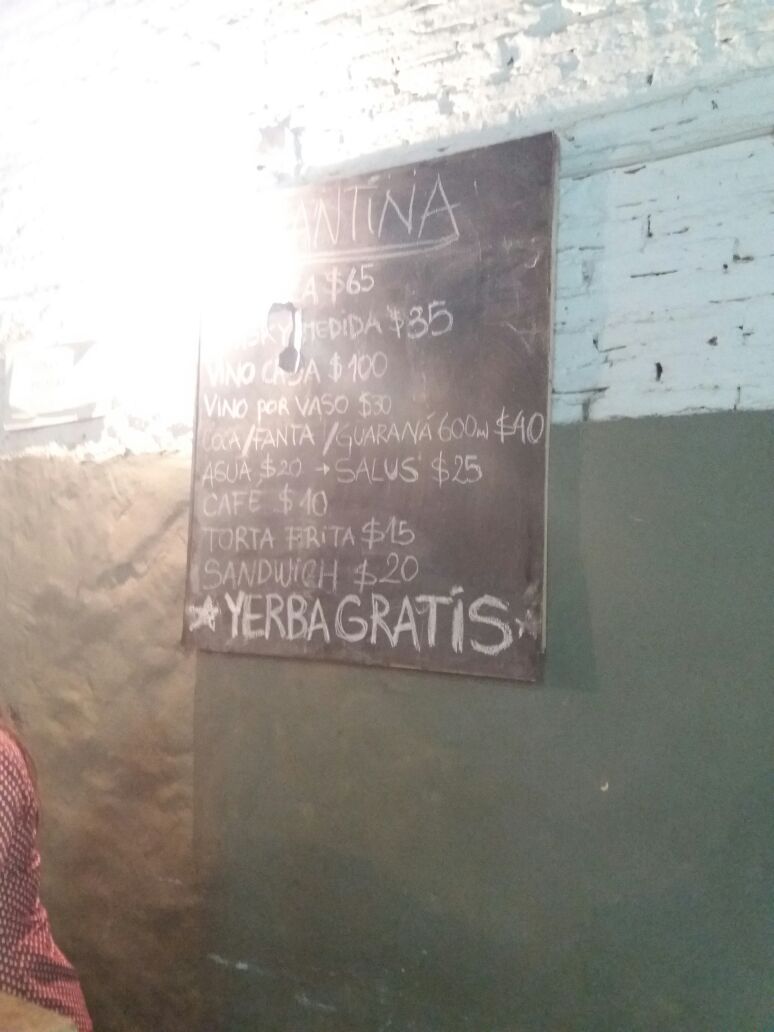 ANTINA
A $65
MEDIDA $35
VINO CAJA $100
VINO POR VASO $30
COCA/FANTA/GUARANÁ 600ml $40
AGUA $20 → SALUS $25
CAFE $10
TORTA FRITA $15
SANDWICH $20
★ YERBA GRATIS ★